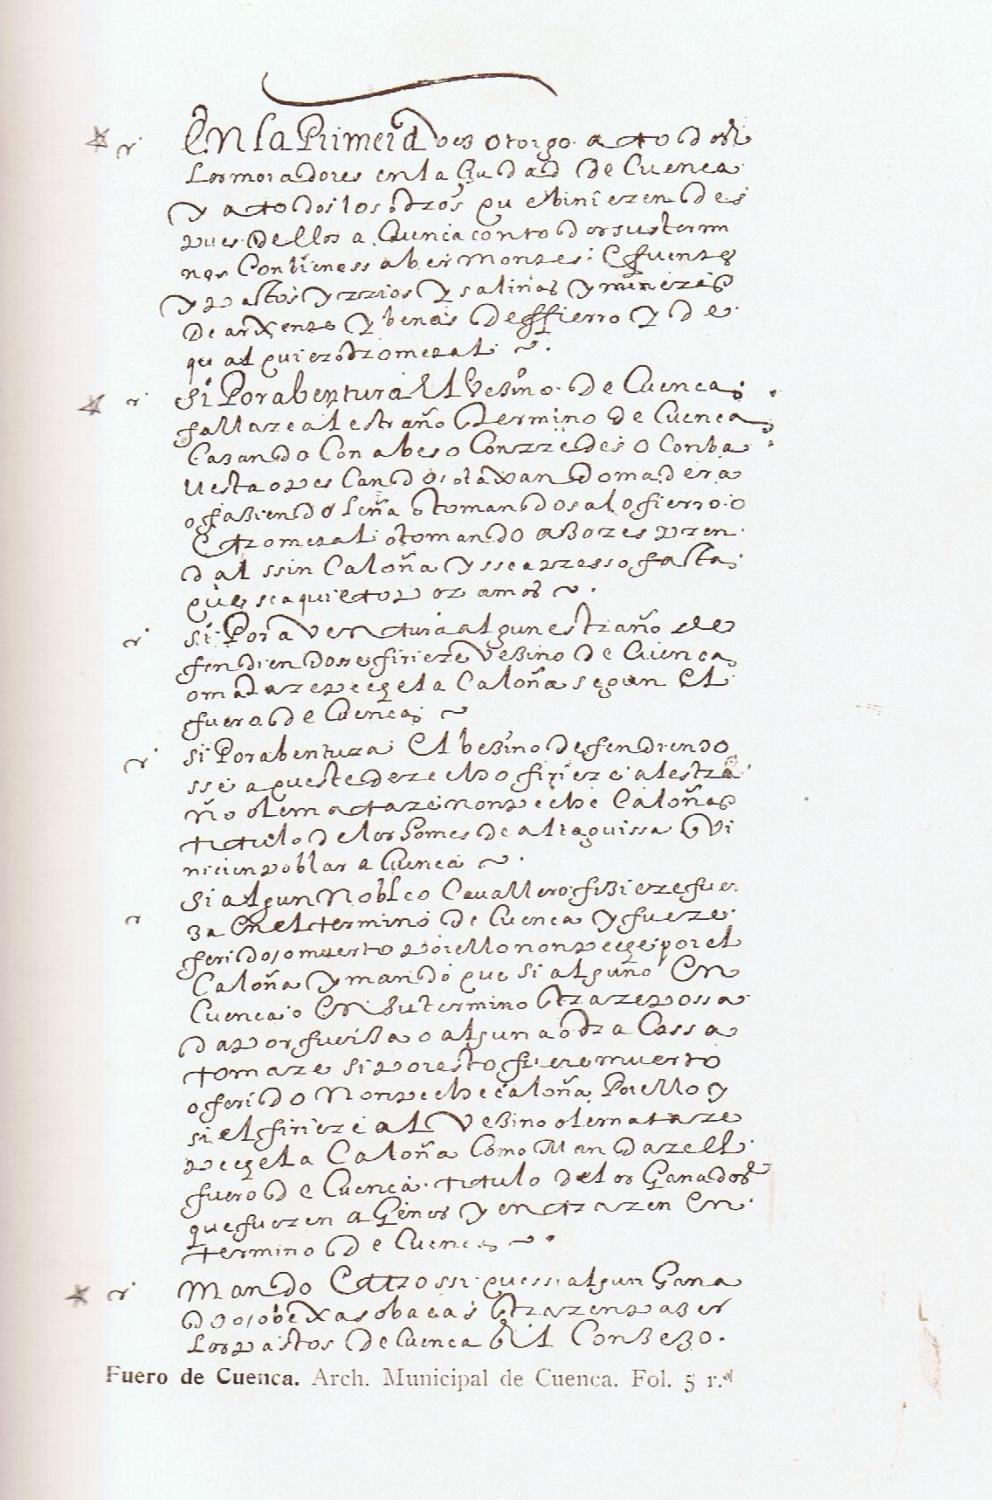 En la Primera ves otorgo a todos
Los moradores en la Ciudad de Cuenca
y a todos los otros qu e binieren des
pues dellos a Cuenca con todos sus termi
nos Conbieness aber montes e fuentes
y pastos y rrios y salinas y mineras
de arxento y benas de ffierro y de
qu al quier otro metal
Si Por abentura El besino de Cuenca
fallare al estraño Termino de Cuenca
Cazando Con abes o Con rredes o Con ba
llesta o pes Cando o taxando madera
o faziendo leña o tomando sal o fierro o
otro metal o tomando azores pren
dal ssin Caloña y ssea presso fasta
que sea quieto por amos
Si Por a ventura algun estraño de
fendiendosse firiere Vezino de Cuenca
o matare peche la Caloña segun el
fuero de Cuenca
Si Por abentura El bezino defendiendo
sse a queste derecho firiere al estra
ño o lo matare non peche Caloñas
titulo de los Comes de alta guissa qui
nicien poblar a Cuenca
Si algun Noble o Cavallero fiziere fuer
za En el termino de Cuenca y fuere
ferido o muerto por ello non peche por el
Caloña y mando que Si alguno En
Cuenca o En Su termino trare possa
da por fuerssa o alguna otra Cossa
tomare si por esto fuere muerto
o ferido Non peche caloña Por ello y
si el firiere al Vezino o le matare
peche la Caloña Como Mandare ell
fuero de Cuenca titulo de los Ganados
que fueren agenos y entraren En
termino de Cuenca
Mando Otrossi que ssi algun Gana
do o obexas o bacas traren pazer
Los pastos de Cuenca El Conzezo.
Fuero de Cuenca. Arch. Municipal de Cuenca. Fol. 5 r.º